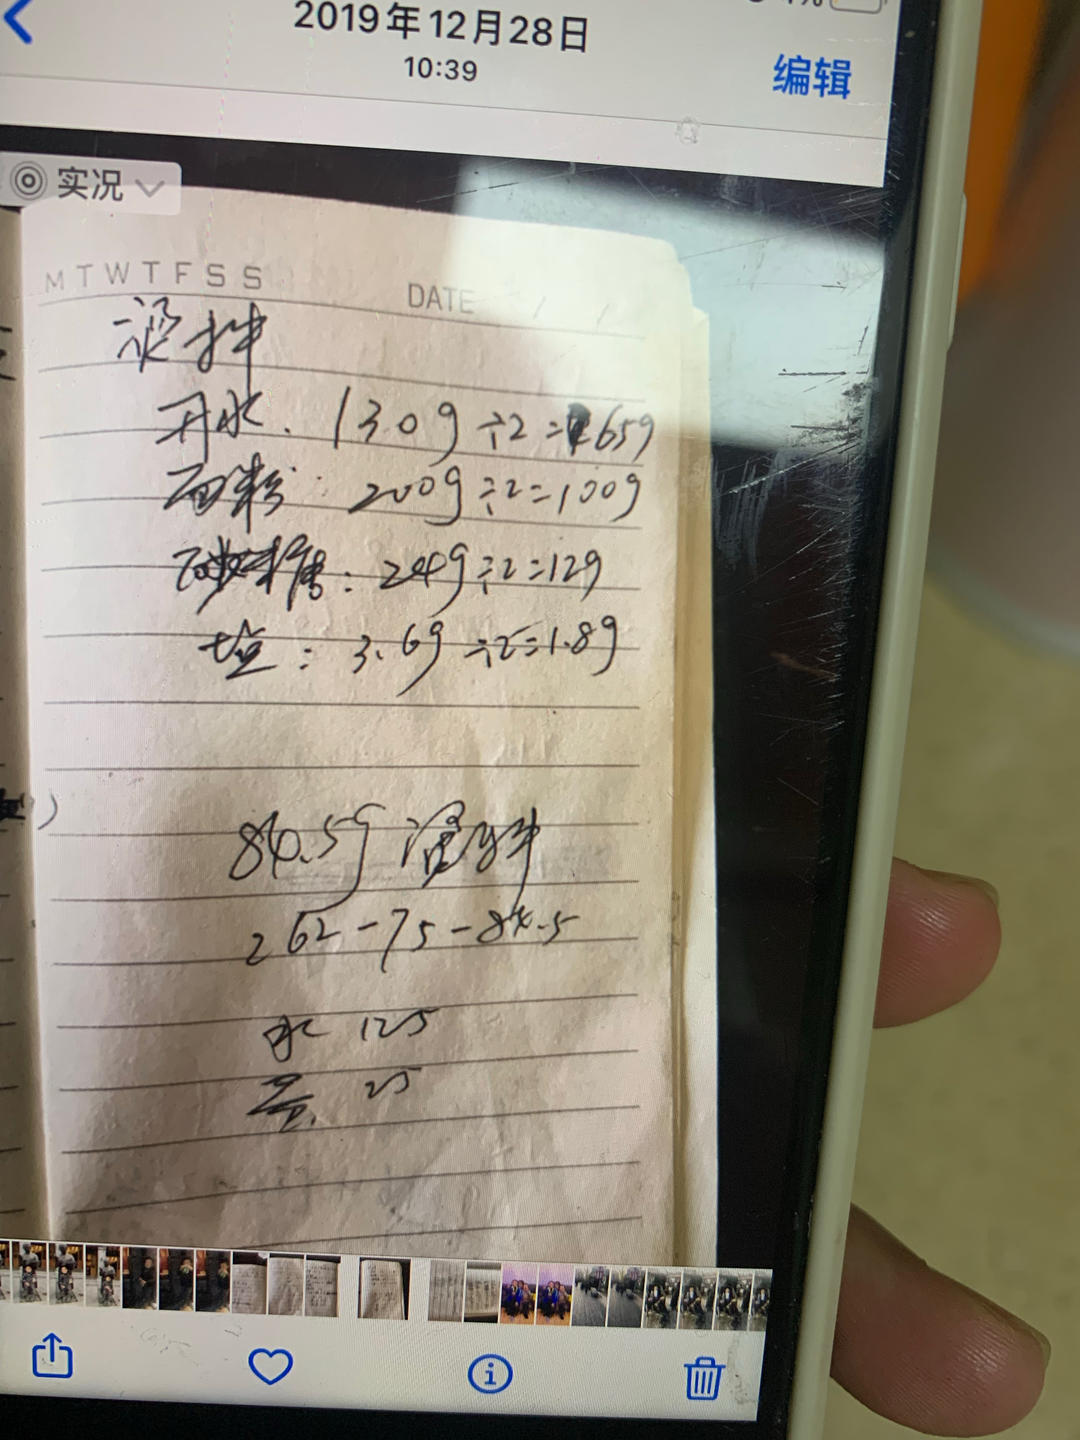 2019年12月28日
10:39
编辑
实况
M T W T F S S
DATE / /
开水. 130g÷2=65g
面粉: 200g÷2=100g
砂糖: 24g÷2=12g
盐: 3.6g÷2=1.8g
84.5g
262-75-84.5
水 125
蛋. 25